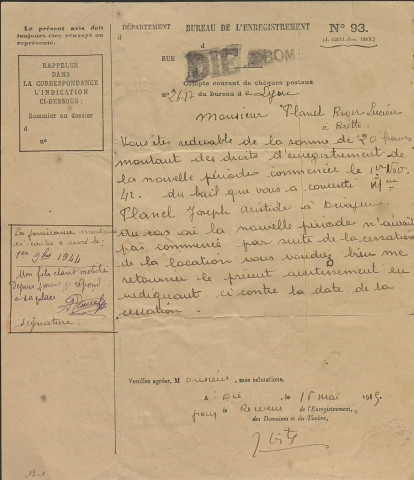 Le présent avis doit
toujours être renvoyé ou
représenté.
RAPPELER
DANS
LA CORRESPONDANCE
L'INDICATION
CI-DESSOUS :
Sommier ou dossier
d
n°
DÉPARTEMENT
d
RUE
BUREAU DE L'ENREGISTREMENT
DIE
N° 93.
Compte courant de chèques postaux
n° du bureau de Lyon
Monsieur Planel Roger Lucien
à
Vous êtes redevable de la somme de 20 francs
montant des droits d'enregistrement de
la nouvelle période commencée le 1er Nov.
42. du bail que vous a consenti Mme
Planel Joseph Aristide à
Au cas où la nouvelle période n'aurait
pas commencé par suite de la cessation
de la location vous voudrez bien me
retourner le présent avertissement en
indiquant ci contre la date de la
cessation.
La jouissance
1er 9bre 1944
Mon fils étant
depuis répond
à sa place
Signature.
Veuillez agréer, Monsieur, mes salutations.
A Die le 15 mai 1945
pour le Receveur de l'Enregistrement,
des Domaines et du Timbre,